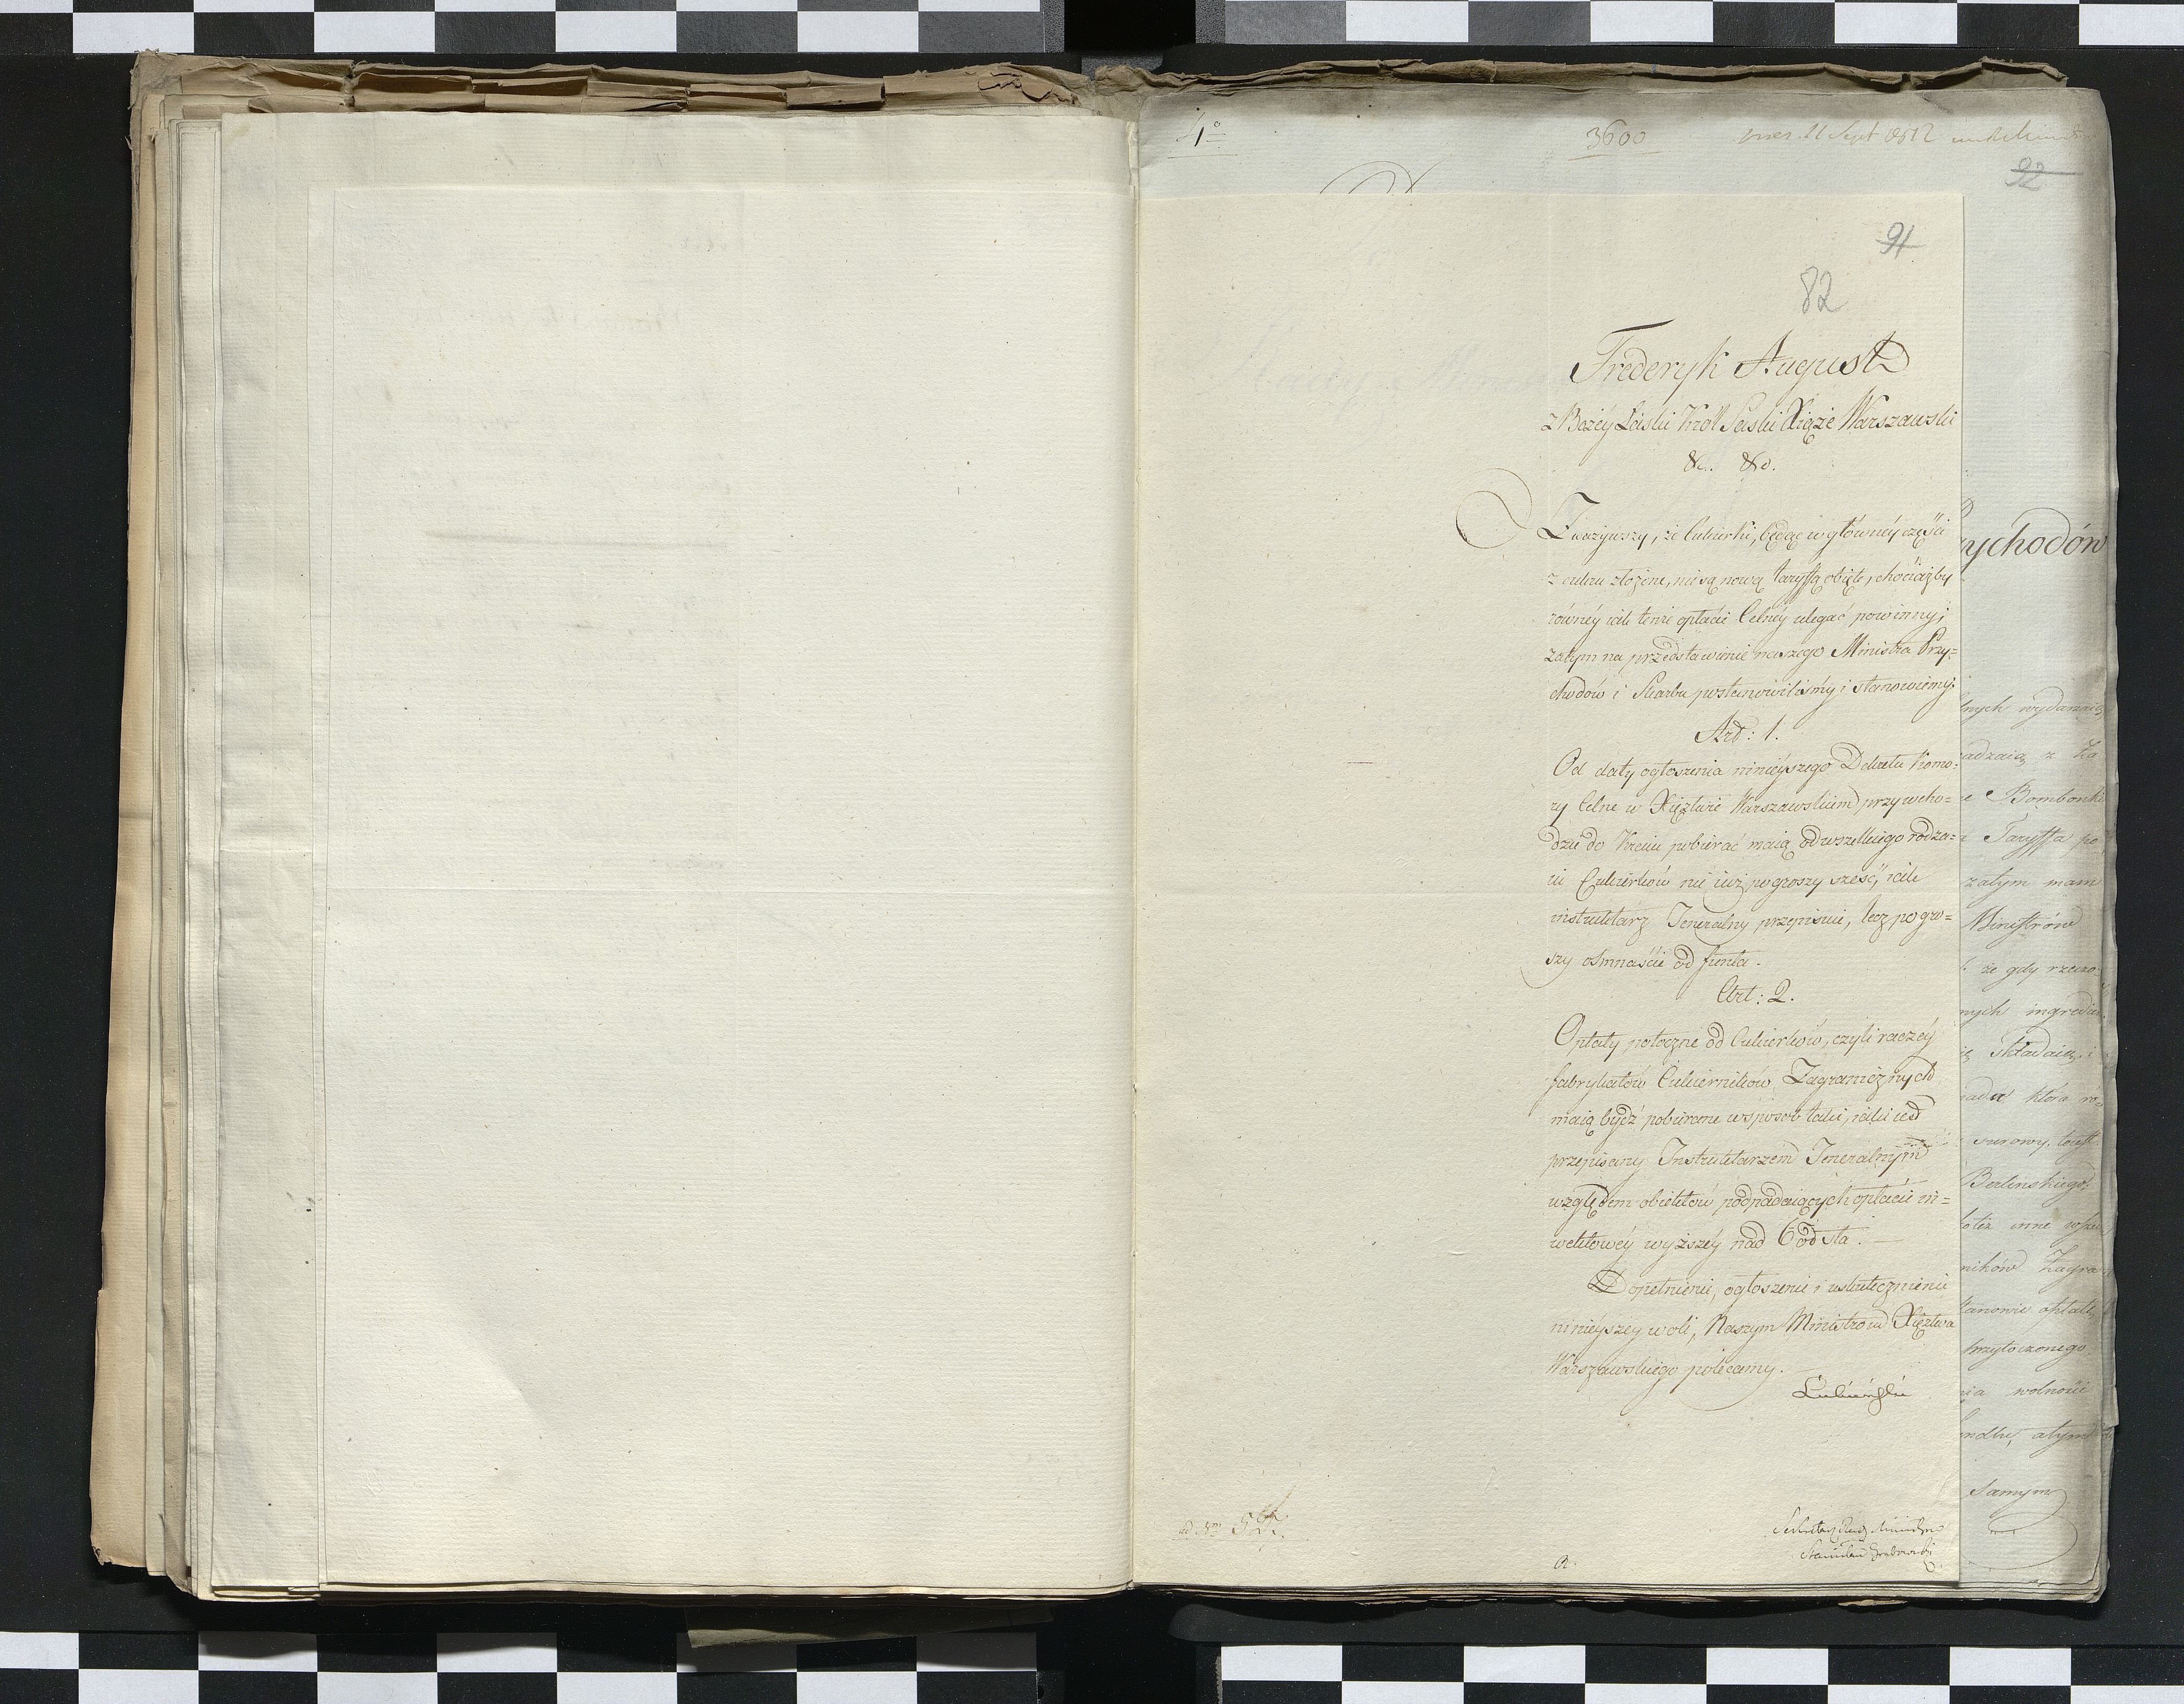 1°
3600
11 Sept 1812
92
91
82
Frederyk August
z Bożéy Łaski Król Saski Xiąże Warszawski
&c. &c.
Zważywszy, że Cukierki, będąc w głównéy części
z cukru złożone, nie są nową taryffą objęte, chociażby
równéy iak tenże opłacie Celnéy ulegać powinny;
zatym na przedstawienie naszego Ministra Przy-
chodów i Skarbu postanowiliśmy i stanowiemy:
Art: 1.
Od daty ogłoszenia ninieyszego Dekretu Komo-
ry Celne w Xięztwie Warszawskiem przy wcho-
dzie do Kraiu pobierać maią od wszelkiego rodza-
iu Cukierków nie iuż po groszy sześć, iak
instruktarz Jeneralny przepisuie, lecz po gro-
szy osmnaście od funta.
Art: 2.
Opłaty potoczne od Cukierków, czyli raczéy
fabrykatów Cukierników Zagranicznych
maią bydź pobierane w sposob taki, iaki iest
przepisany Instruktarzem Jeneralnym
względem obiektów podpadaiących opłacie in-
wektowéy wyższéy nad 6 od sta. —
Dopełnienie, ogłoszenie i uskutecznienie
ninieyszey woli, Naszym Ministrom Xięztwa
Warszawskiego polecamy.
Łubieński
Sekretarz Rady Ministrów
Stanisław Grabowski
ychodów
nych wydanaią
adzaią z Za
e Bombonki
Taryffa po
zatym mam
Ministrów
że gdy rzeczo
nych ingredie
ię składaią, i
która ró-
surowy,
Berlinskiego,
też inne wsze
ników Zagra
stanowić opłatę,
przytoczonego
nia wolność
ndlu, atym
samym